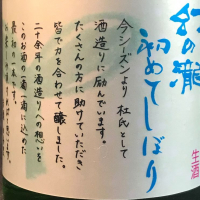 幻の瀧
初めてしぼり
生酒
今シーズンより杜氏として
酒造りに励んでいます。
たくさんの方に助けていただき
皆で力を合わせて醸しました。
二十余年の酒造りへの想いを
このお酒の一滴一滴に込めた
最初の一本です。